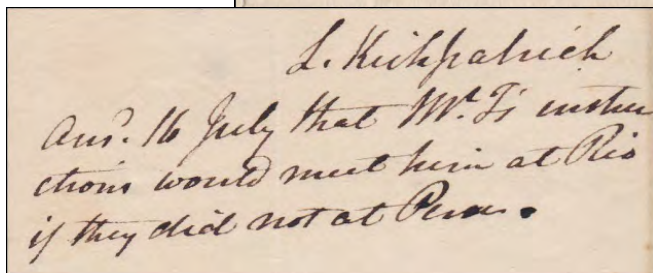 L. Kirkpatrick
Ansd. 16 July that Mr. T's instru
ctions would meet him at Rio
if they did not at Pera.